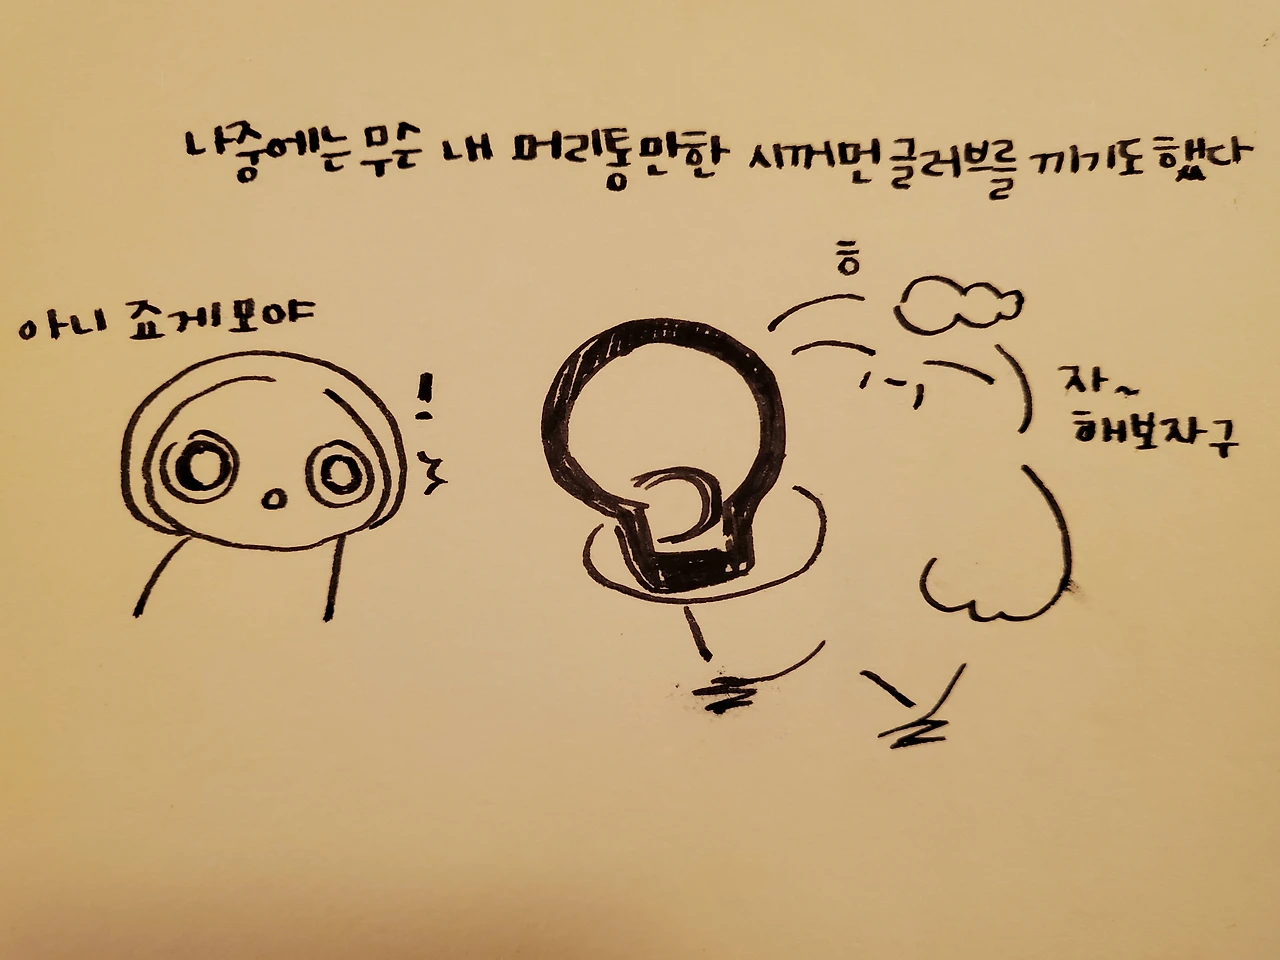 나중에는 무슨 내 머리통만한 시꺼먼 글러브를 끼기도 했다
흥
아니 죠게모야
자~
해보자구